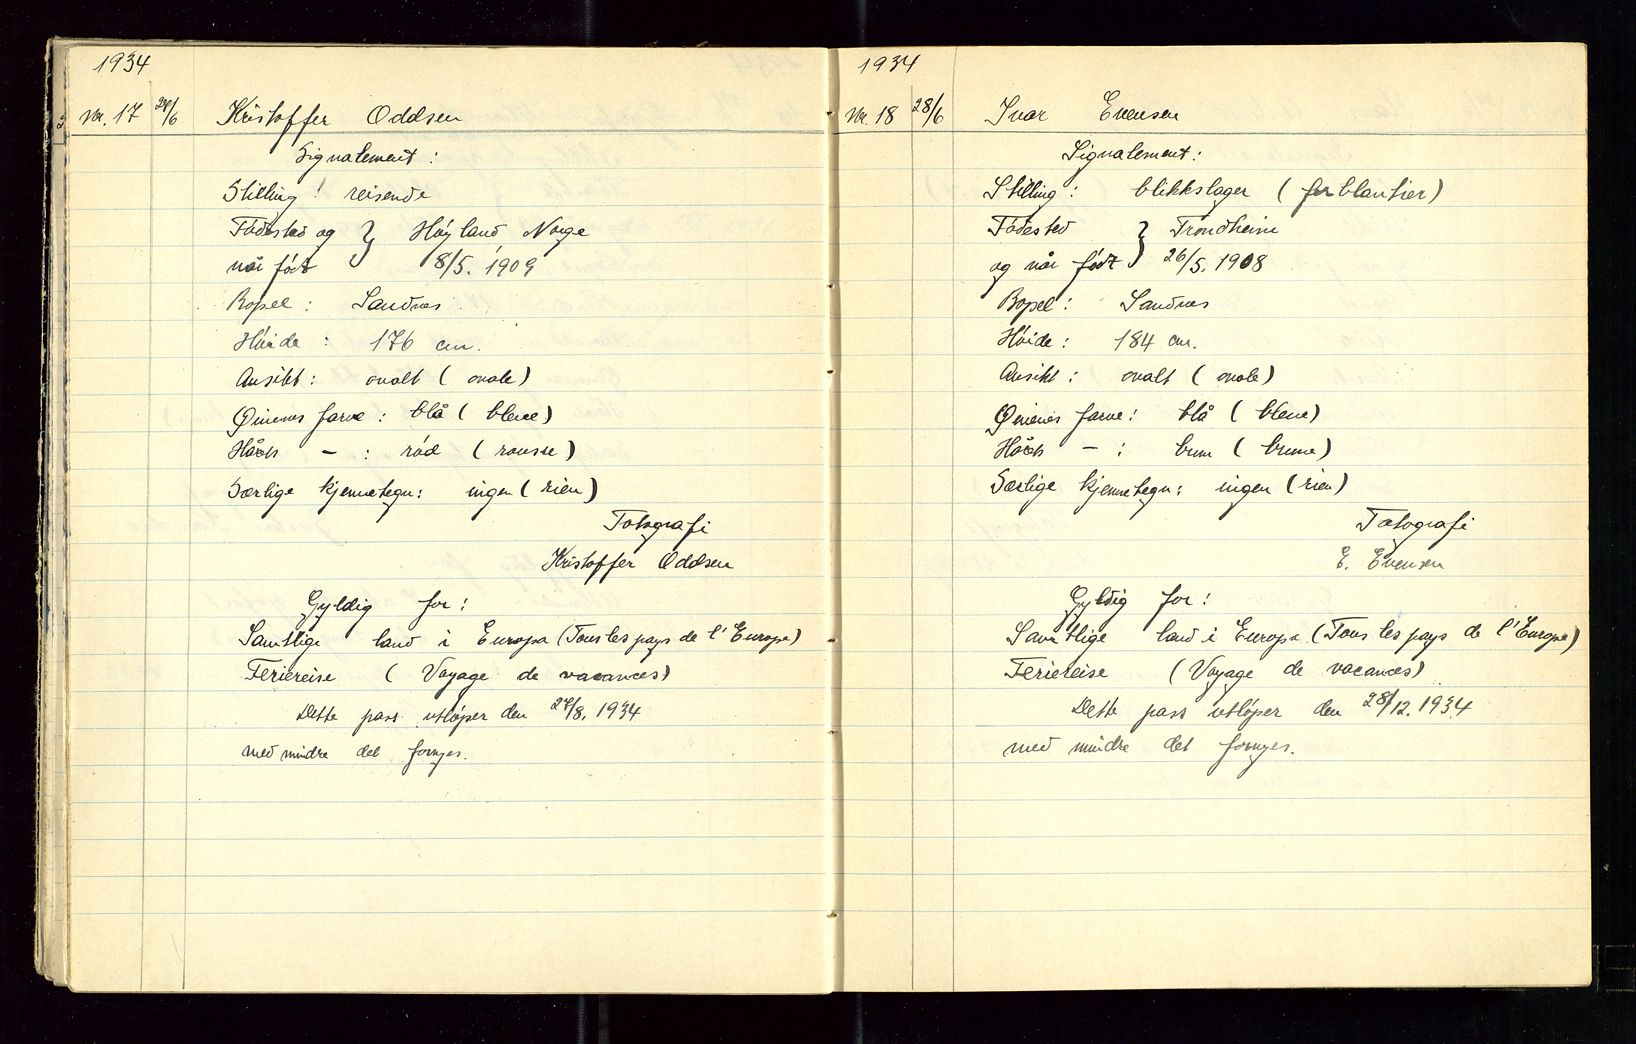 1934
Nr. 17 27/6 Kristoffer Oddsen
Signalement:
Stilling: reisende
Fødested og } Høyland Norge
når født } 8/5. 1909
Bopel: Sandnes
Høide: 176 cm.
Ansikt: ovalt (ovale)
Øinenes farve: blå (bleue)
Hårets — : rød (rousse)
Særlige kjennetegn: ingen (rien)
Fotografi
Kristoffer Oddsen
Gyldig for:
Samtlige land i Europa (Tous les pays de l'Europe)
Feriereise (Voyage de vacances)
Dette pass utløper den 27/8. 1934
med mindre det fornyes.
1934
Nr. 18 28/6 Ivar Evensen
Signalement:
Stilling: blikkslager (ferblantier)
Fødested } Trondheim
og når født } 26/5. 1908
Bopel: Sandnes
Høide: 184 cm.
Ansikt: ovalt (ovale)
Øinenes farve: blå (bleue)
Hårets — : brun (brune)
Særlige kjennetegn: ingen (rien)
Fotografi
E. Evensen
Gyldig for:
Samtlige land i Europa (Tous les pays de l'Europe)
Feriereise (Voyage de vacances)
Dette pass utløper den 28/12. 1934
med mindre det fornyes.